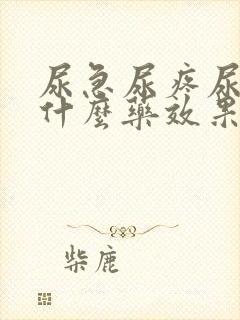 尿急尿疼尿
什麼藥效果
柴鹿